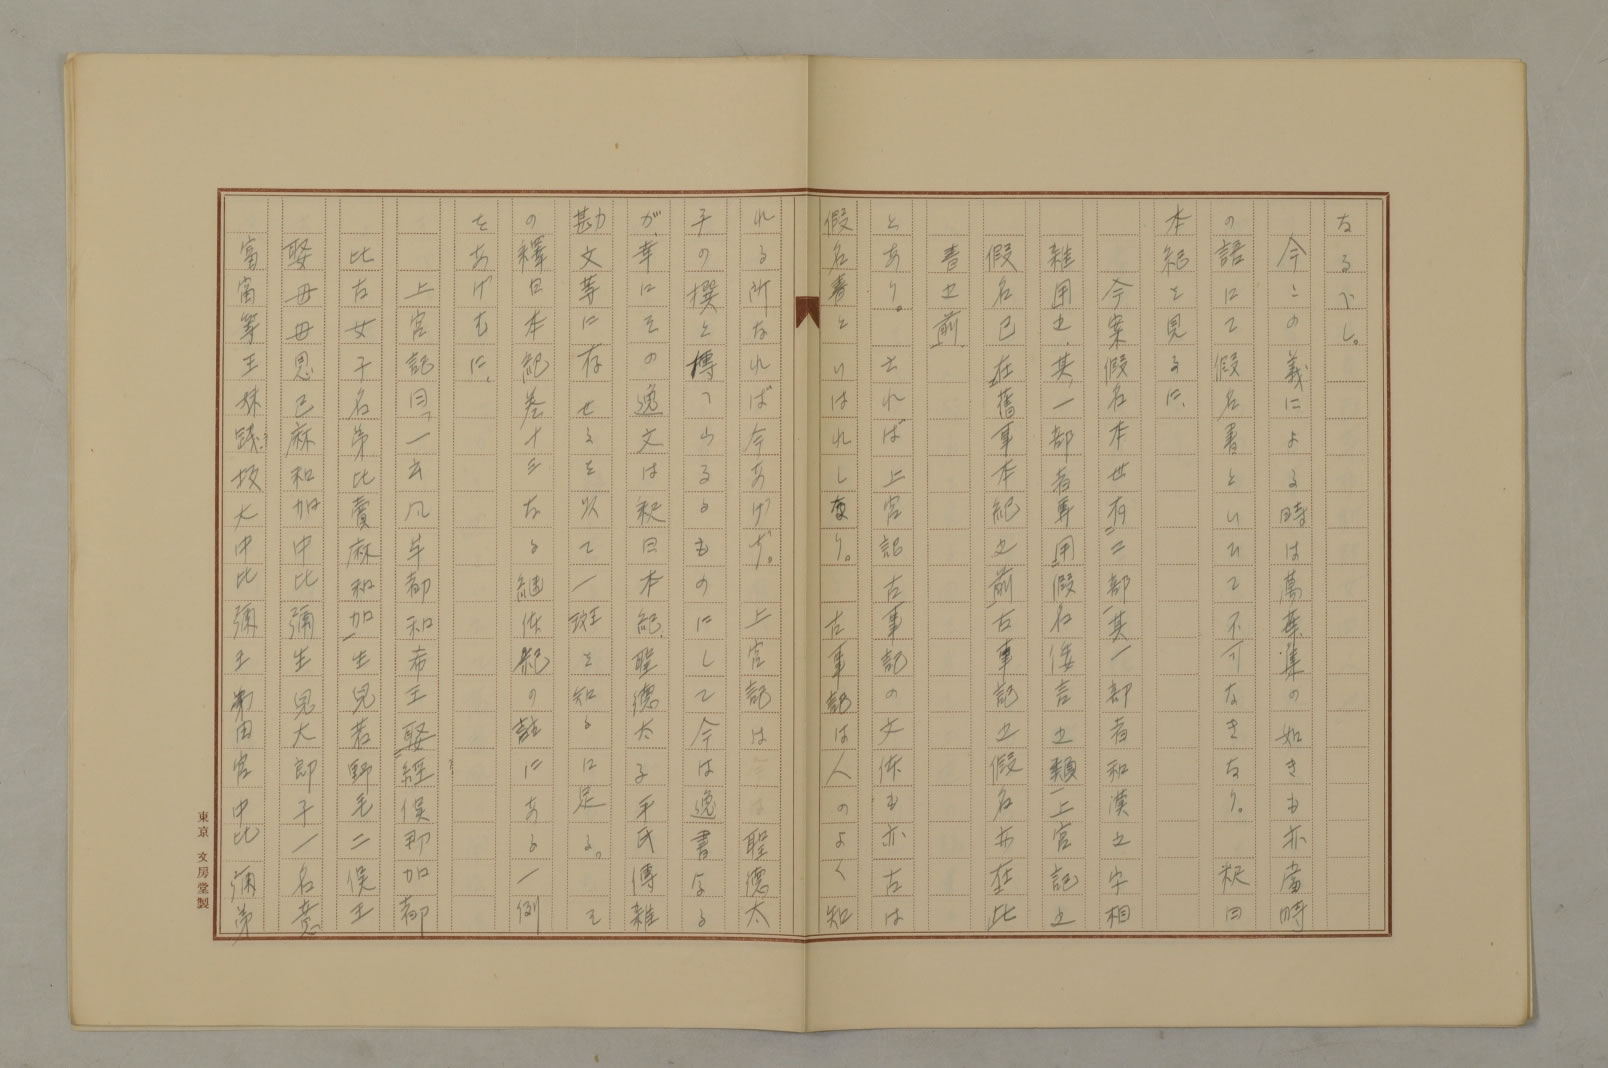 なるべし。
今この義による時は萬葉集の如きも亦當時
の語にて假名書といひて不可なきなり。釈日
本紀を見るに、
今案假名本世有二部、其一部者和漢之字相
雑用之、其一部者専用假名倭言之類、上宮記之
假名已在舊事本紀之前古事記之假名亦在此
書之前、
とあり。されば上宮記古事記の文体も亦古は
假名書といはれしなり。古事記は人のよく知
れる所なれば今あげず。上宮記は聖德太
子の撰と傳へらるるものにして今は逸書なる
が、幸にその逸文は釈日本紀、聖德太子平氏傳雑
勘文等に存せるを以て一斑を知るに足る。そ
の釋日本紀巻十三なる継体紀の註にある一例
をあげむに、
上宮記曰、一云凡牟都和希王娶經俣那加都
比古女子名弟比賣麻和加、生兒若野毛二俣王
娶母母恩己麻和加中比彌生兒大郎子一名意
富富等王妹踐坂大中比彌王弟田宮中比彌弟
東京 文房堂製